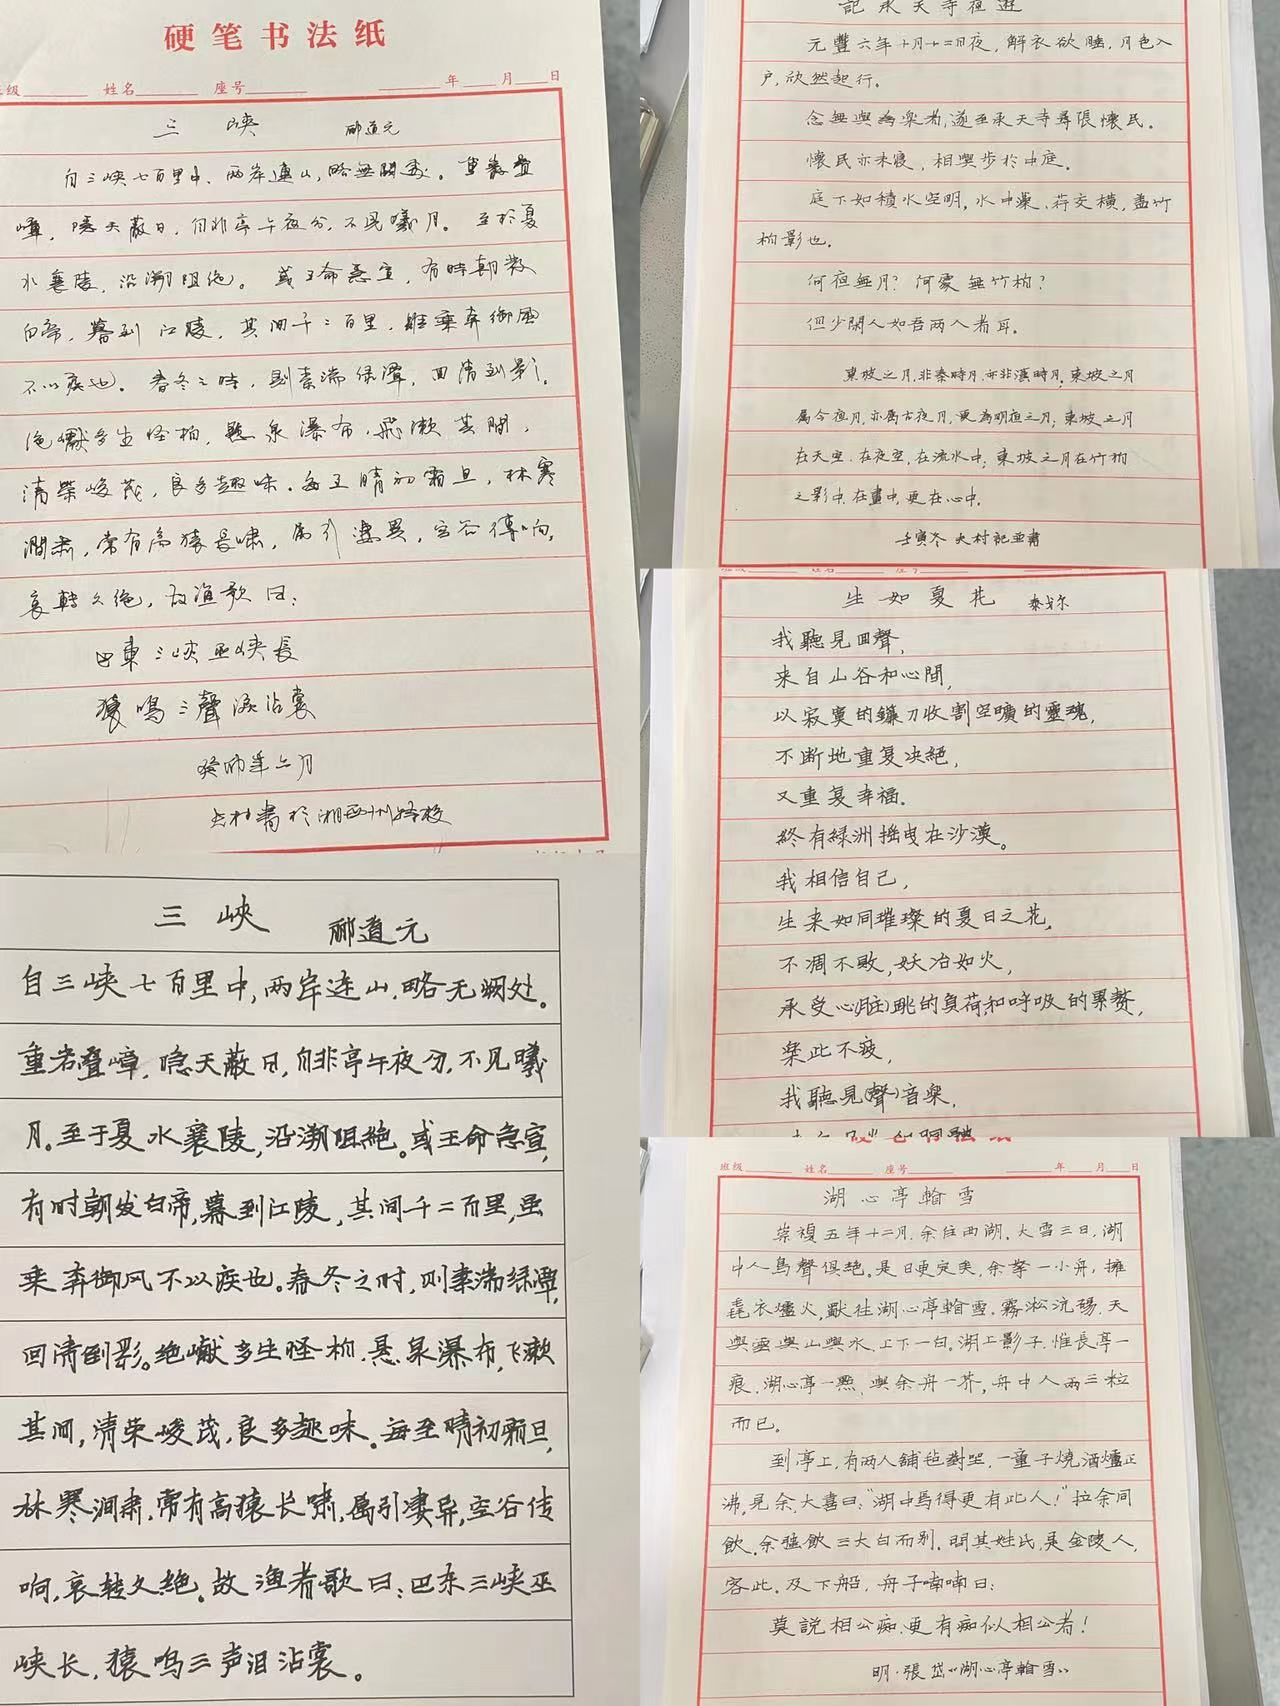 硬笔书法纸
级 姓名 座号 年 月 日
三峡 酈道元
自三峡七百里中，两岸連山，略無闕處。重巖疊
嶂，隐天蔽日，自非亭午夜分，不見曦月。至於夏
水襄陵，沿溯阻绝。或王命急宣，有時朝發
白帝，暮到江陵，其间千二百里，雖乘奔御風
不以疾也。春冬之時，則素湍绿潭，回清到影。
绝巘多生怪柏，懸泉瀑布，飛漱其間，
清荣峻茂，良多趣味。每至晴初霜旦，林寒
澗肃，常有高猿長嘯，属引凄異，空谷傳响，
哀轉久绝，故渔歌曰：
巴東三峡巫峡長
猿鳴三聲淚沾裳
癸卯年六月
大村書於湘西州特校
三峡 郦道元
自三峡七百里中，两岸连山，略无阙处。
重岩叠嶂，隐天蔽日，自非亭午夜分，不见曦
月。至于夏水襄陵，沿溯阻绝。或王命急宣，
有时朝发白帝，暮到江陵，其间千二百里，虽
乘奔御风不以疾也。春冬之时，则素湍绿潭，
回清倒影。绝巘多生怪柏，悬泉瀑布，飞漱
其间，清荣峻茂，良多趣味。每至晴初霜旦，
林寒涧肃，常有高猿长啸，属引凄异，空谷传
响，哀转久绝。故渔者歌曰：巴东三峡巫
峡长，猿鸣三声泪沾裳。
記承天寺夜遊
元豐六年十月十二日夜，解衣欲睡，月色入
户，欣然起行。
念無與為樂者，遂至承天寺尋張懷民。
懷民亦未寝，相與步於中庭。
庭下如積水空明，水中藻、荇交横，盖竹
柏影也。
何夜無月？何處無竹柏？
但少閑人如吾两人者耳。
東坡之月，非秦時月，亦非漢時月；東坡之月
属今夜月，亦属古夜月，更為明夜之月；東坡之月
在天空，在夜空，在流水中；東坡之月在竹柏
之影中，在畫中，更在心中。
壬寅冬 大村記並書
生如夏花 泰戈尔
我聽見回聲，
来自山谷和心間，
以寂寞的鐮刀收割空曠的靈魂，
不断地重复决絕，
又重复幸福。
終有綠洲摇曳在沙漠。
我相信自己，
生来如同璀璨的夏日之花，
不凋不败，妖冶如火，
承受心(脏)跳的負荷和呼吸的累赘，
樂此不疲，
我聽見(聲)音樂，
班级 姓名 座号 年 月 日
湖心亭看雪
崇禎五年十二月，余住西湖。大雪三日，湖
中人鳥聲俱絕。是日更定矣，余拏一小舟，擁
毳衣爐火，獸往湖心亭看雪。霧淞沆碭，天
與雲與山與水，上下一白。湖上影子，惟長亭一
痕、湖心亭一點、與余舟一芥，舟中人兩三粒
而已。
到亭上，有两人鋪毡對坐，一童子燒酒爐正
沸，見余，大喜曰：“湖中焉得更有此人！”拉余同
飲。余强飲三大白而别。問其姓氏，是金陵人，
客此。及下船，舟子喃喃曰：
莫說相公痴，更有痴似相公者！
明·張岱“湖心亭看雪”